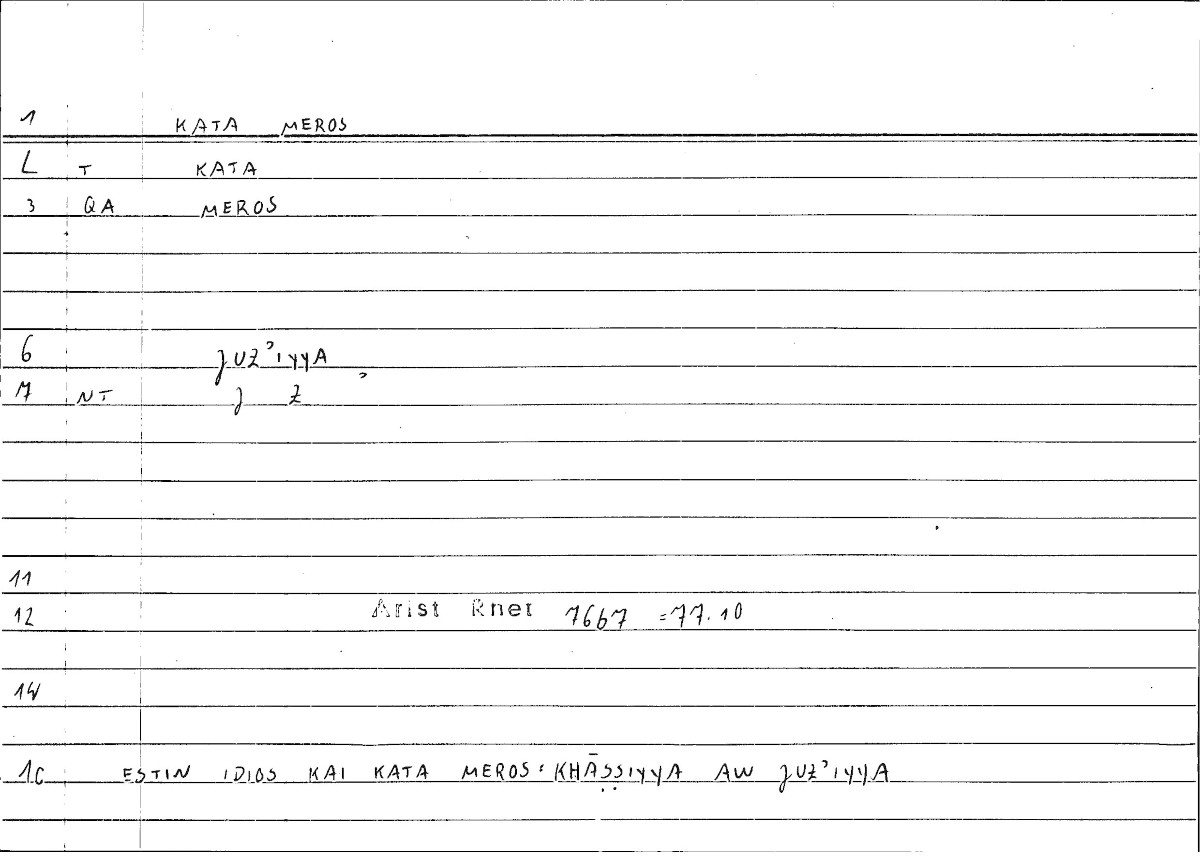 1 KATA MEROS
L T KATA
3 QA MEROS
6 ȷUZʾIYYA
7 NT ȷ Z ʾ
11
12 Arist Rhet 7667 = 77.10
14
1C ESTIN IDIOS KAI KATA MEROS: KHĀṢṢIYYA AW ȷUZʾIYYA